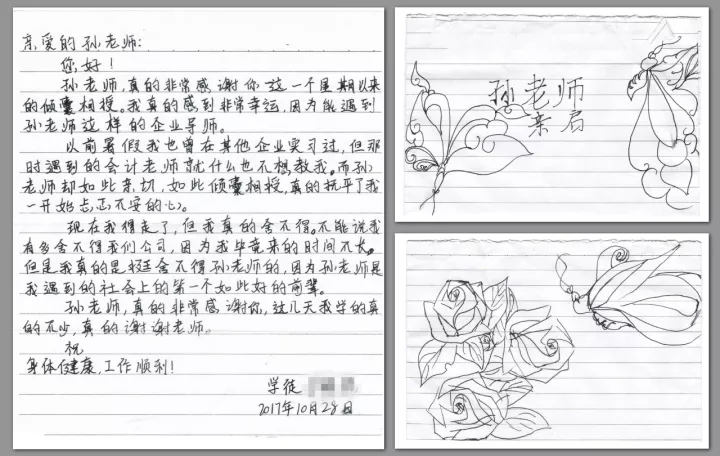 亲爱的孙老师:
您好!
孙老师,真的非常感谢你这一个星期以来
的倾囊相授。我真的感到非常幸运,因为能遇到
孙老师这样的企业导师。
以前暑假我也曾在其他企业实习过,但那
时遇到的会计老师就什么也不想教我。而孙
老师却如此亲切,如此倾囊相授,真的抚平了我
一开始忐忑不安的心。
现在我得走了,但我真的舍不得。不能说我
有多舍不得我们公司,因为我毕竟来的时间不长。
但是我真的是挺舍不得孙老师的,因为孙老师是
我遇到的社会上的第一个如此好的前辈。
孙老师,真的非常感谢你,这几天我学的真
的不少,真的谢谢老师。
祝
身体健康,工作顺利!
学徒
2017年10月28日
孙老师
亲启